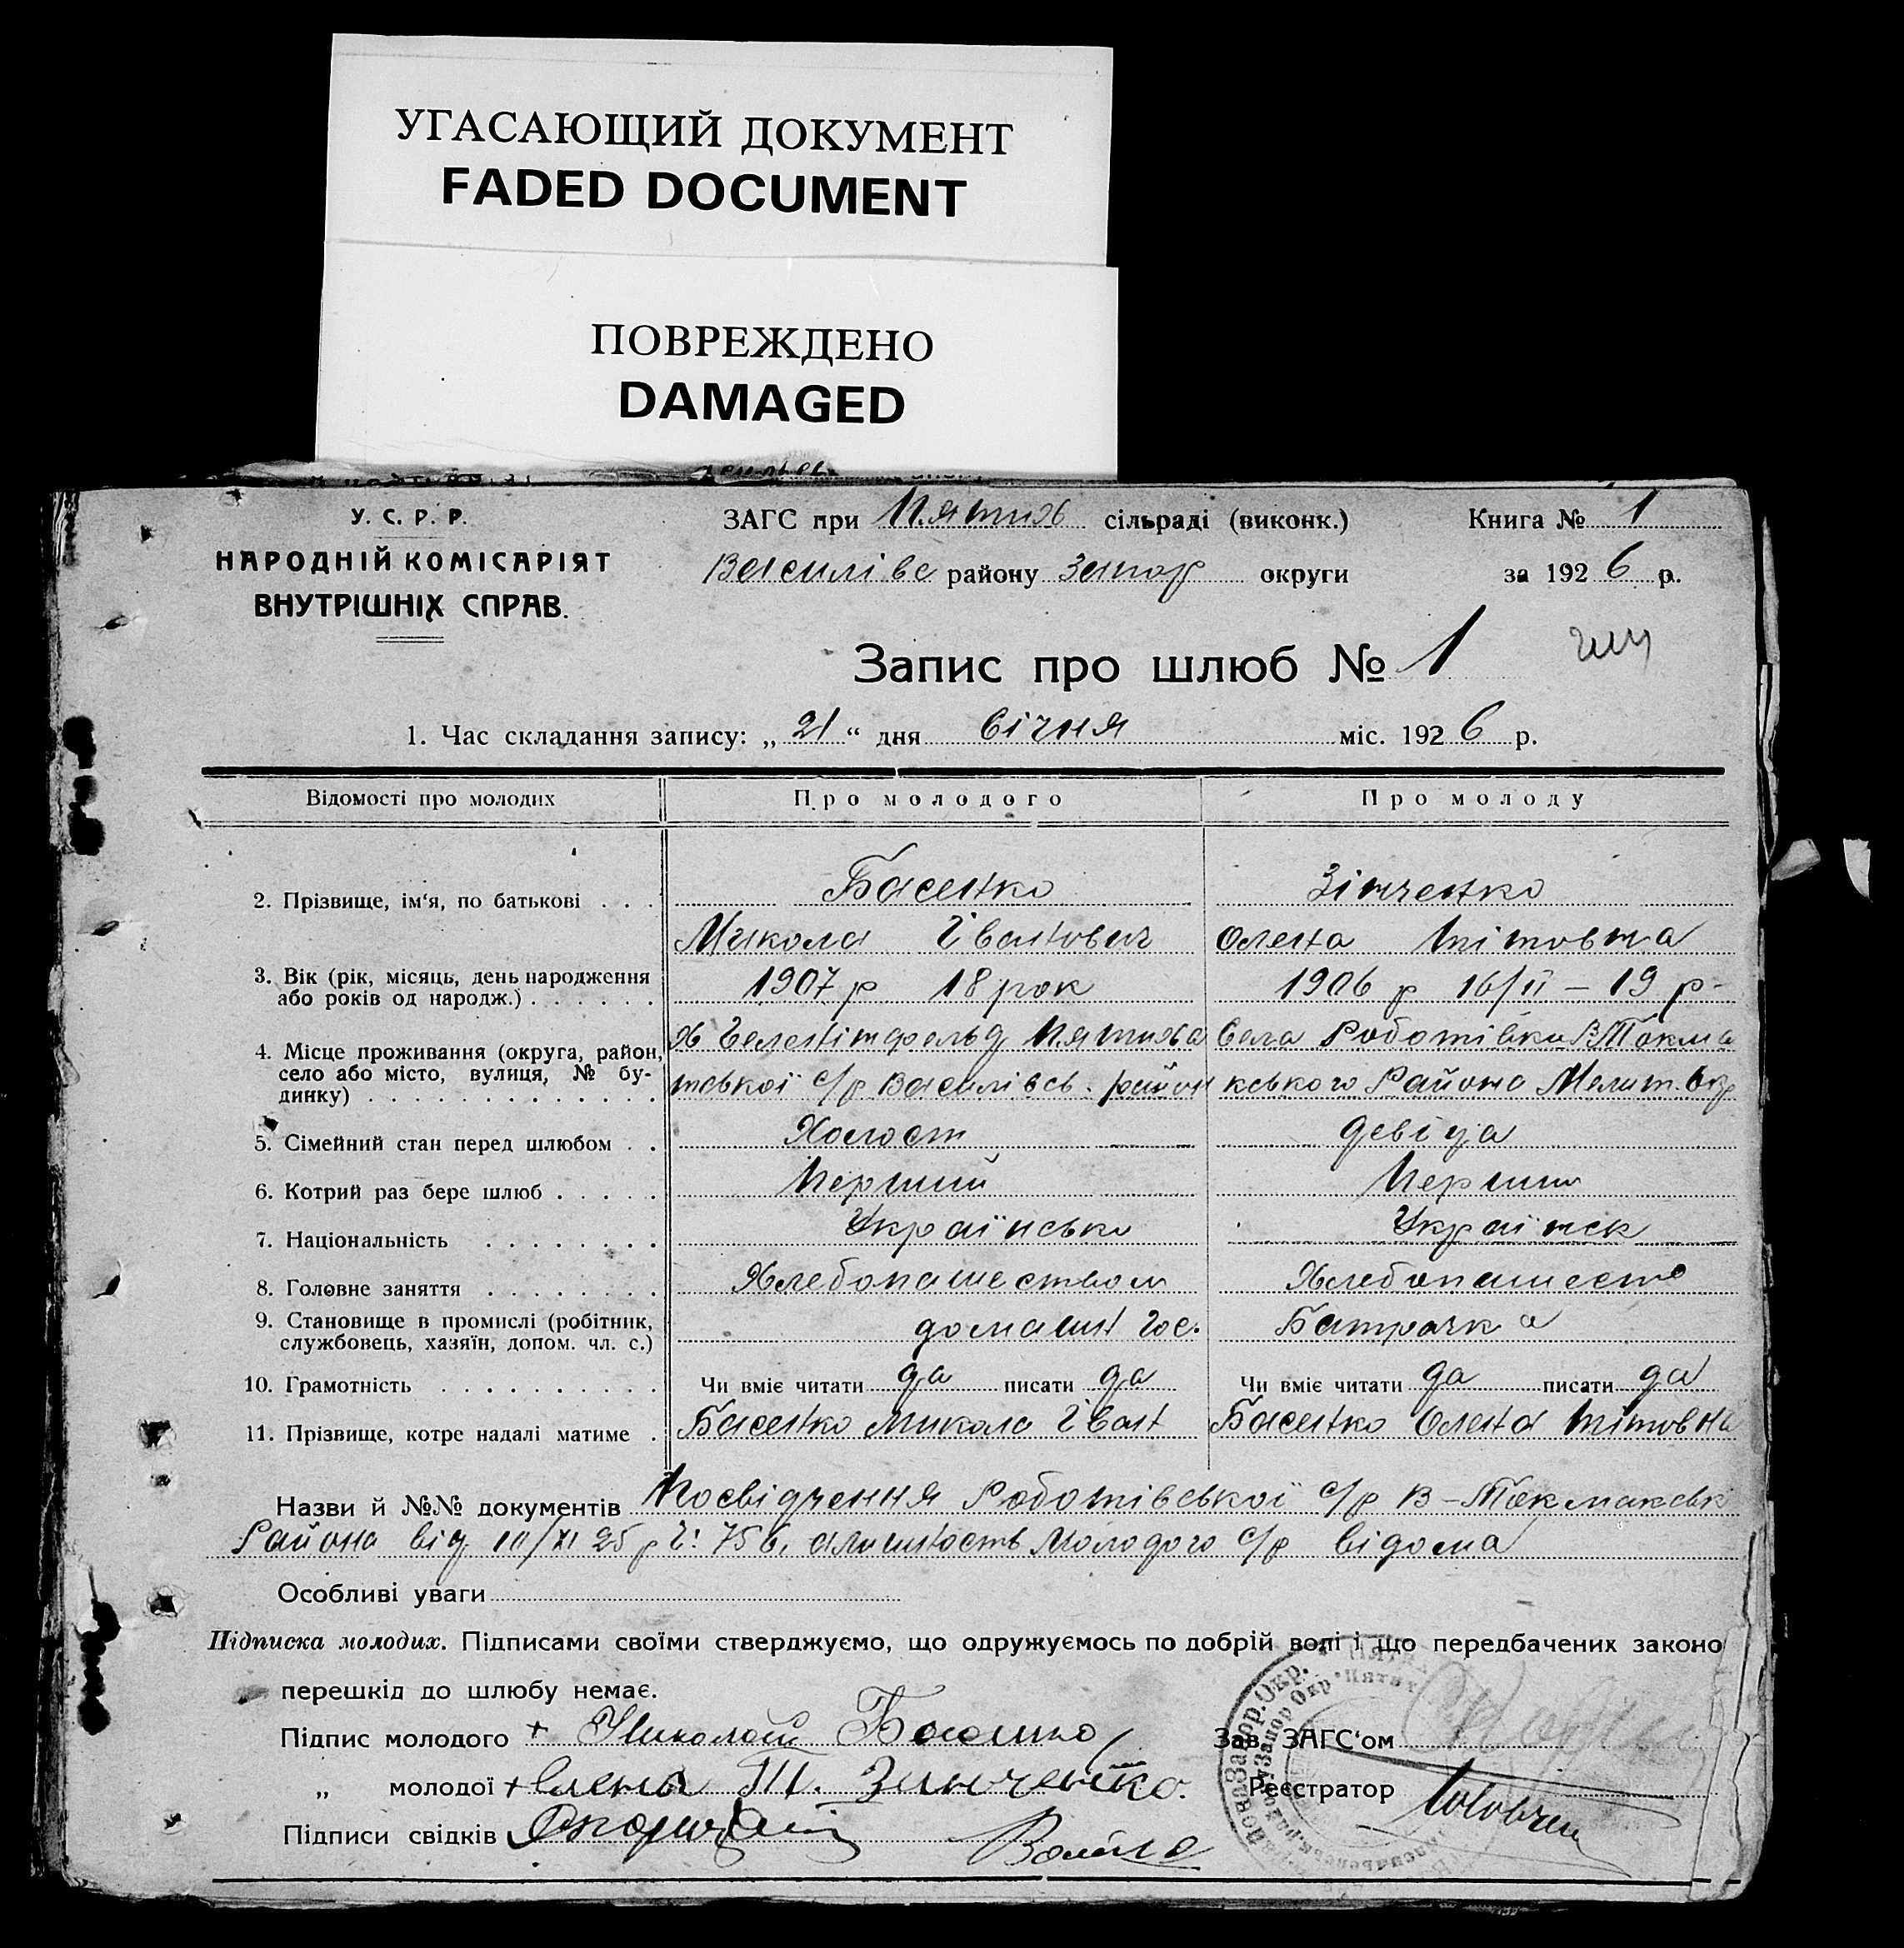 УГАСАЮЩИЙ ДОКУМЕНТ
FADED DOCUMENT
ПОВРЕЖДЕНО
DAMAGED
У. С. Р. Р.
НАРОДНІЙ КОМІСАРІЯТ
ВНУТРІШНІХ СПРАВ.
ЗАГС при Пятих сільраді (виконк.)
Василівс району Запор округи
Книга № 1
за 1926 р.
Запис про шлюб № 1
1. Час складання запису: „21“ дня Січня міс. 1926 р.
Відомості про молодих Про молодого Про молоду
2. Прізвище, ім‘я, по батькові . . . Басенко Зінченко
Микола Іванович Олена Тітовна
3. Вік (рік, місяць, день народження
або років од народж.) . . . . . . 1907 р 18 рок 1906 р 16/II – 19 р-
4. Місце проживання (округа, район,
село або місто, вулиця, № бу-
динку) . . . . . . . . . . . . .
х Пятиха
нської с/р Василівсь. район
Села Роботівки В Токма
кського Района Мелит. Окр
5. Сімейний стан перед шлюбом . . Холост девіца
6. Котрий раз бере шлюб . . . . . Перший Перший
7. Національність . . . . . . . . Українська Українск
8. Головне заняття . . . . . . . . Хлебопашеством Хлебопашеств
9. Становище в промислі (робітник,
службовець, хазяїн, допом. чл. с.) домашн Гос. Батрачка
10. Грамотність . . . . . . . . . . Чи вміє читати да писати да Чи вміє читати да писати да
11. Прізвище, котре надалі матиме . Басенко Микола Іван Басенко Олена Тітовна
Назви й №№ документів Посвідчення Роботнівської с/р В-Токмакськ
Района від 25 р Ч: 756, а личность Молодого с/р відома
Особливі уваги
Підписка молодих. Підписами своїми стверджуємо, що одружуємось по добрій волі і що передбачених законо
перешкід до шлюбу немає.
Підпис молодого + Николай Басенко
„ молодої + Елена Т. Зинченко.
Підписи свідків
Зав. ЗАГС‘ом
Реєстратор